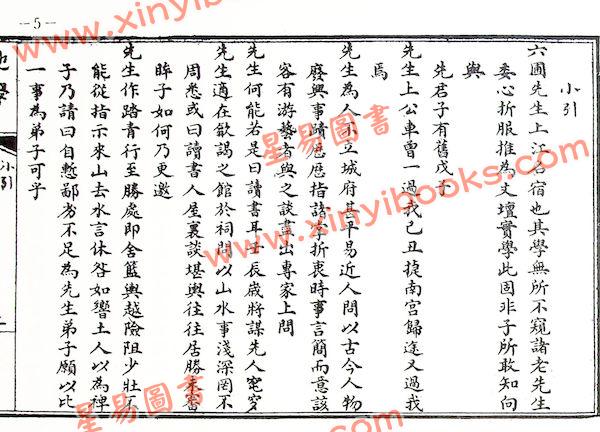 -5-
小引
六圃先生上江名宿也其學無所不窺諸老先生
委心折服推為文壇實學此固非予所敢知向
與
先君子有舊戊子
先生上公車曾一過我己丑捷南宮歸途又過我
焉
先生為人不立城府甚早易近人問以古今人物
廢興事蹟歷歷指諸掌折衷時事言簡而意該
客有游藝者與之談畫出專家上問
先生何能若是曰讀書耳壬辰歲將謀先人窀穸
先生適在歙謁之館於祠問以山水事淺深罔不
周悉或曰讀書人屋裏談堪輿往往居勝未審
眸子如何乃更邀
先生作踏青行至勝處即舍籃輿越險阻少壯不
能從指示來山去水言休咎如響土人以為神
子乃請曰自慙鄙劣不足為先生弟子願以比
一事為弟子可乎
小引
www.xinyibooks.com
星易圖書
www.xinyibooks.com
星易圖書
www.xinyibooks.com